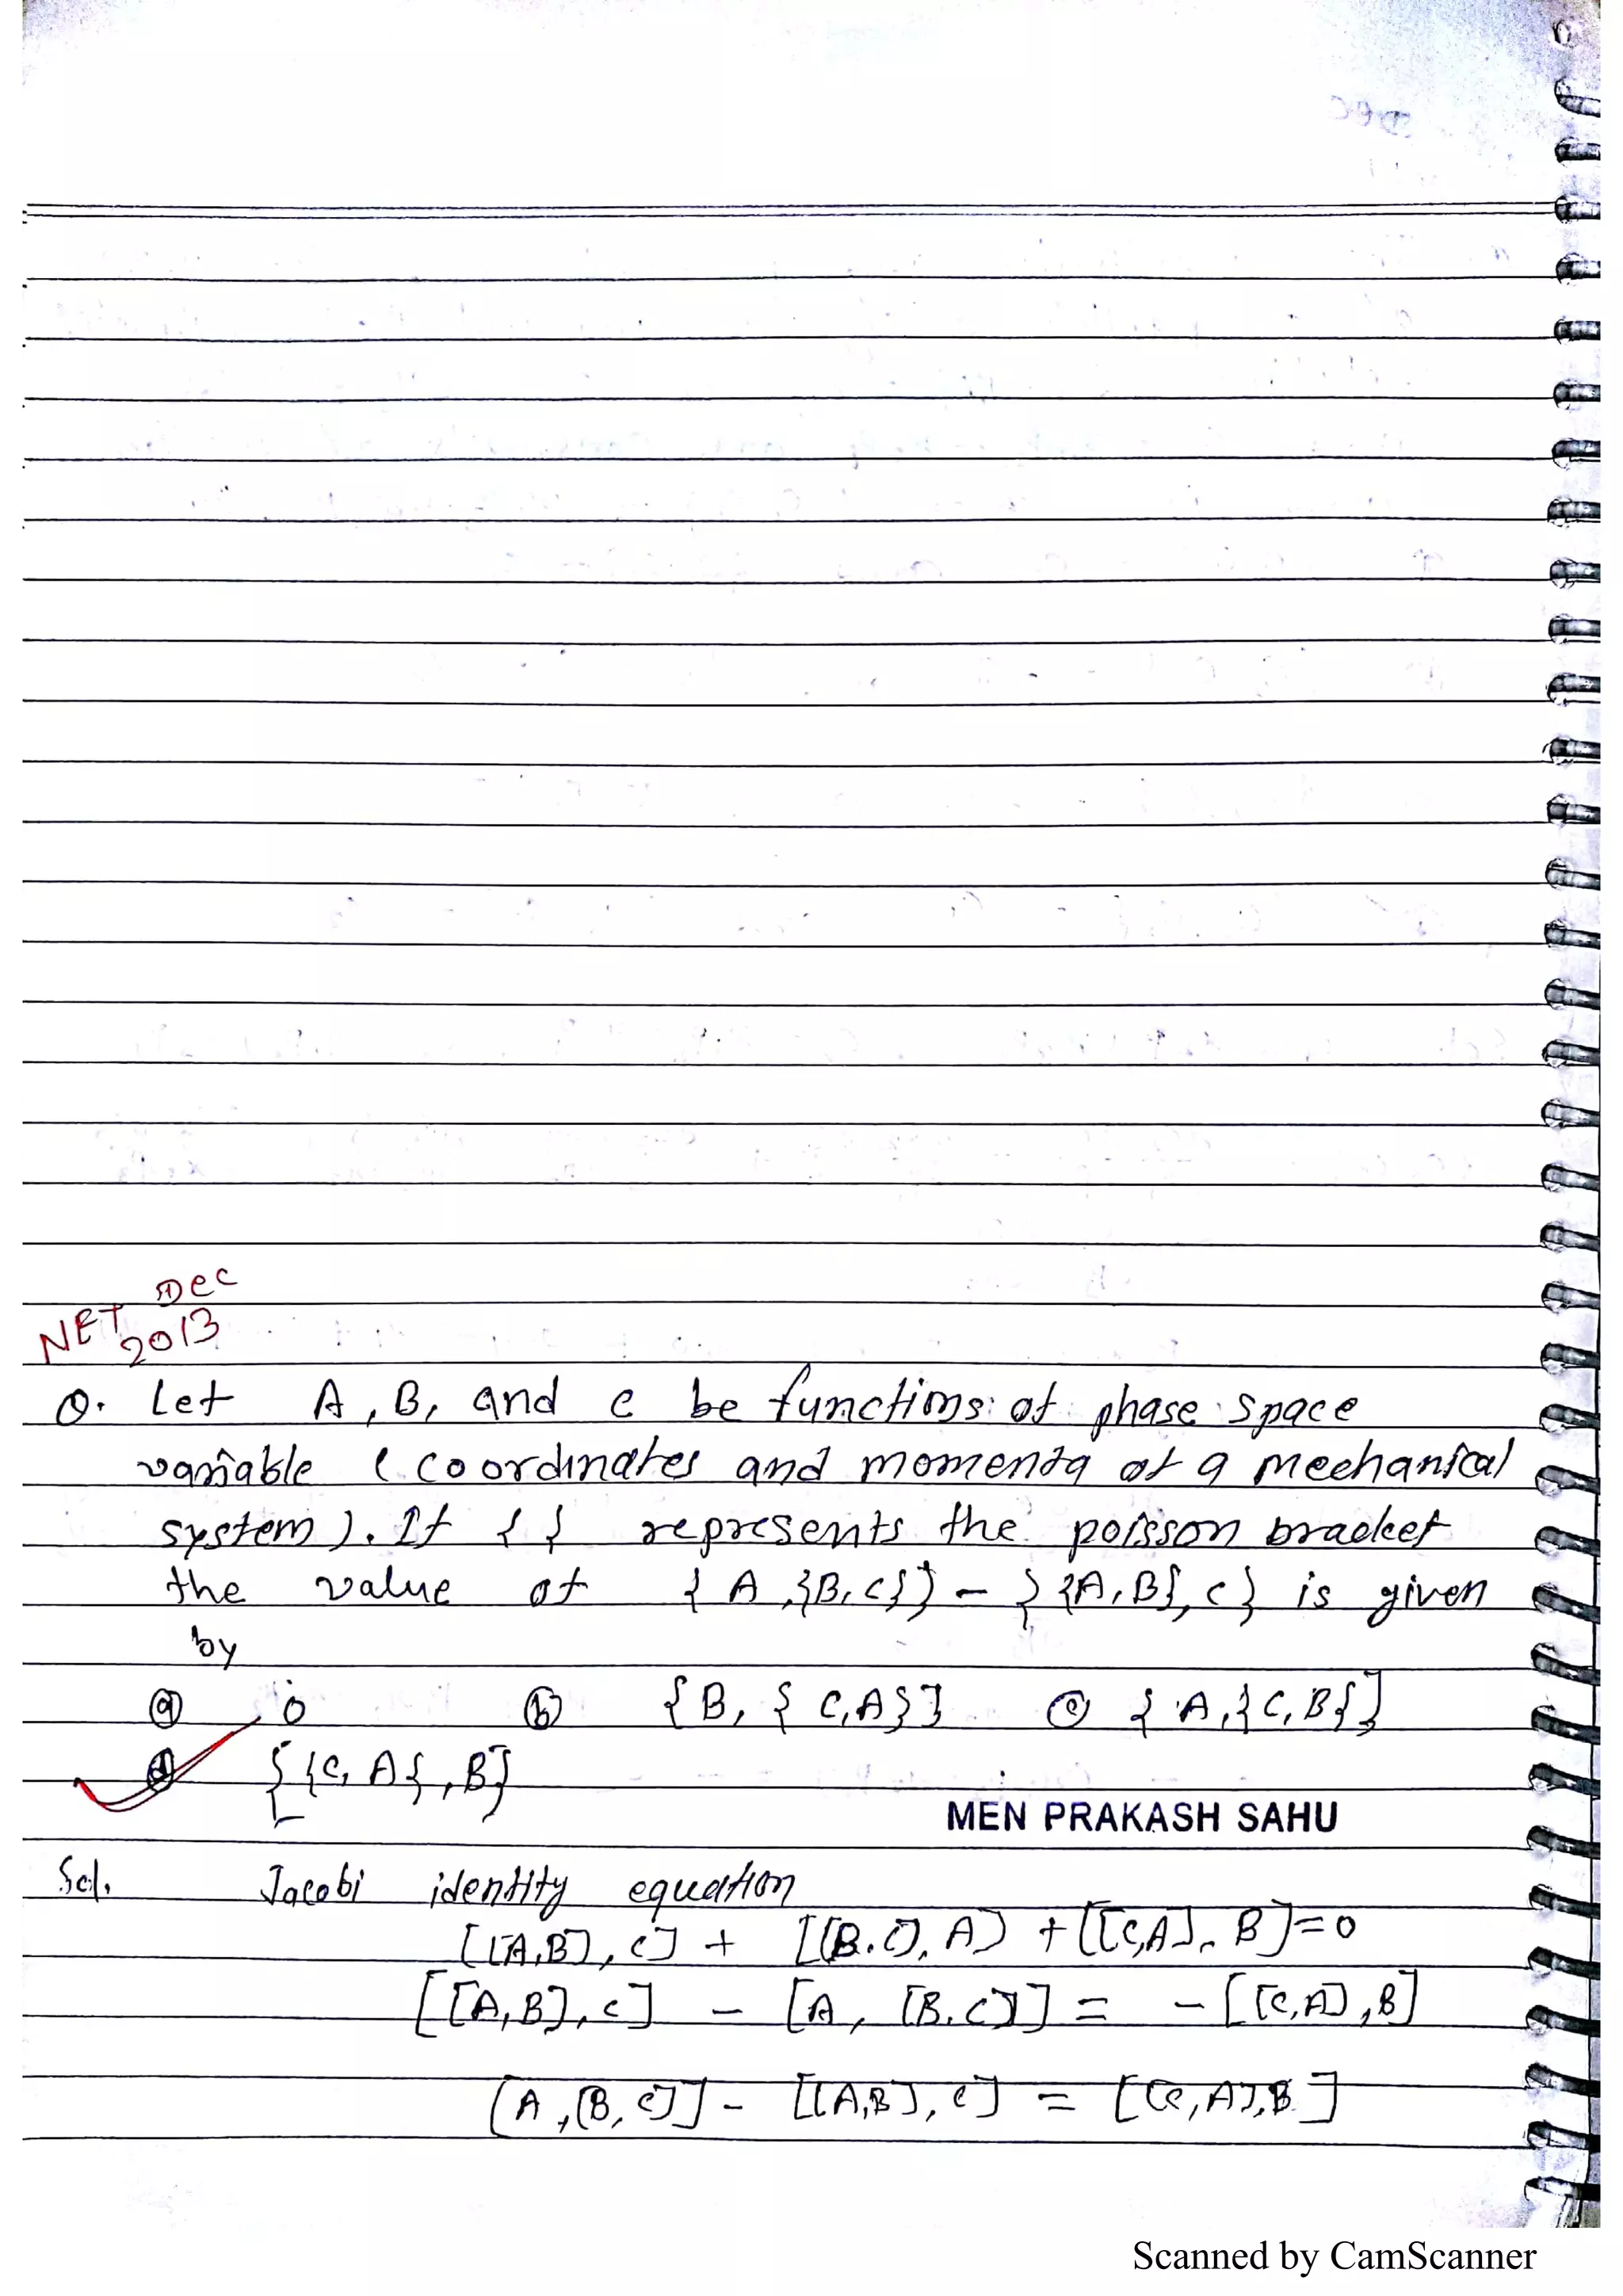 Dec
NET 2013
Q. Let A, B, and C be functions of phase space
variable (coordinates and momenta of a mechanical
system). If { } represents the poisson bracket
the value of {A,{B,C}} - {{A,B},C} is given
by
(a) 0 (b) {B,{C,A}} (c) {A,{C,B}}
(d) {{C,A},B}
MEN PRAKASH SAHU
Sol. Jacobi identity equation
[[A,B],C] + [[B,C],A] + [[C,A],B] = 0
[[A,B],C] - [A,[B,C]] = -[[C,A],B]
[A,[B,C]] - [[A,B],C] = [[C,A],B]
Scanned by CamScanner